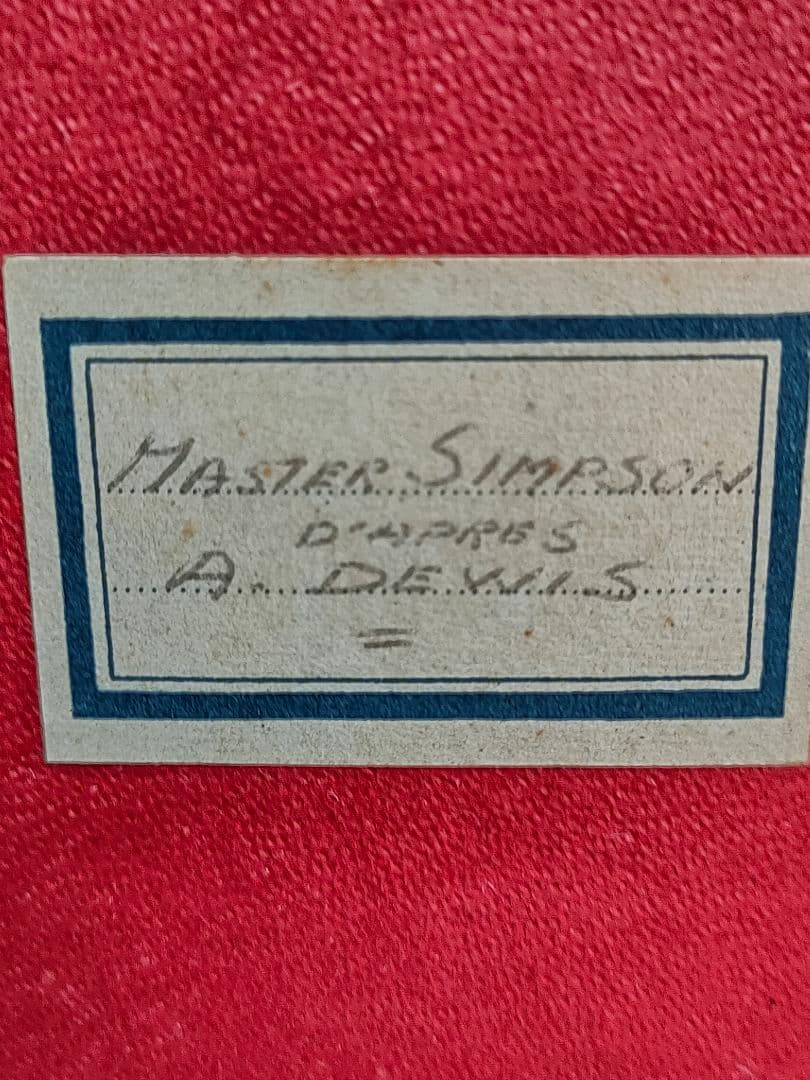 MASTER SIMPSON
D'APRES
A. DEVVIS